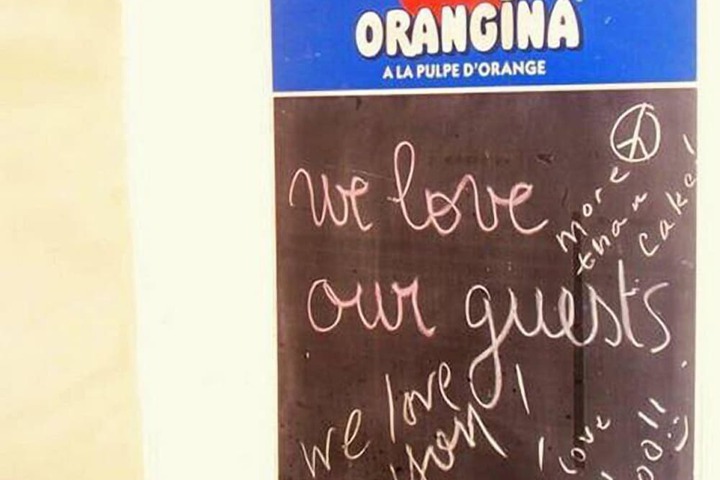 ORANGINA
A LA PULPE D'ORANGE
we love
our guests
more
than
cake!
we love
you!
I love